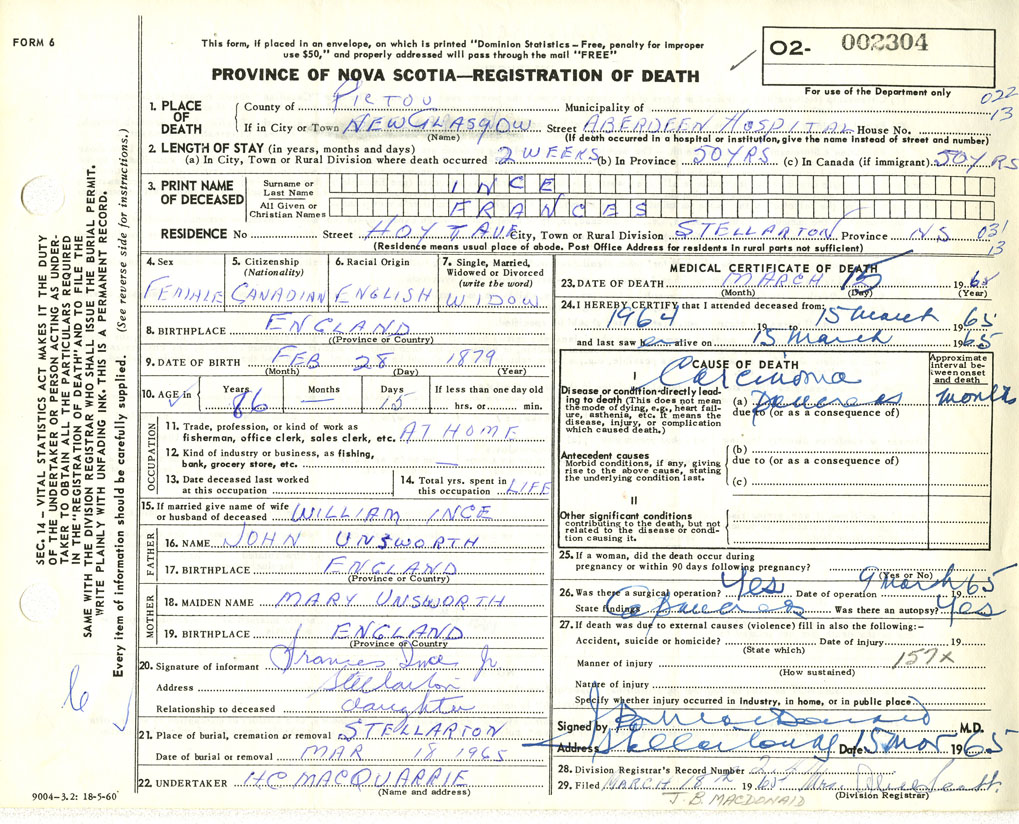 FORM 6
This form, if placed in an envelope, on which is printed "Dominion Statistics – Free, penalty for improper
use $50," and properly addressed will pass through the mail "FREE"
PROVINCE OF NOVA SCOTIA—REGISTRATION OF DEATH
O2- 002304
For use of the Department only
022
13
1. PLACE OF DEATH
County of PICTOU Municipality of
If in City or Town NEW GLASGOW Street ABERDEEN HOSPITAL House No.
(Name) (If death occurred in a hospital or institution, give the name instead of street and number)
2. LENGTH OF STAY (in years, months and days)
(a) In City, Town or Rural Division where death occurred 2 WEEKS (b) In Province 50 YRS (c) In Canada (if immigrant) 50 YRS
3. PRINT NAME OF DECEASED
Surname or Last Name INCE
All Given or Christian Names FRANCES
RESIDENCE No Street HOYT AVE City, Town or Rural Division STELLARTON Province NS
031
13
(Residence means usual place of abode. Post Office Address for residents in rural parts not sufficient)
4. Sex FEMALE
5. Citizenship (Nationality) CANADIAN
6. Racial Origin ENGLISH
7. Single, Married, Widowed or Divorced (write the word) WIDOW
8. BIRTHPLACE ENGLAND
((Province or Country)
9. DATE OF BIRTH FEB 28 1879
(Month) (Day) (Year)
10. AGE in Years 86 Months — Days 15 If less than one day old hrs. or min.
OCCUPATION
11. Trade, profession, or kind of work as
fisherman, office clerk, sales clerk, etc. AT HOME
12. Kind of industry or business, as fishing,
bank, grocery store, etc. —
13. Date deceased last worked
at this occupation
14. Total yrs. spent in
this occupation LIFE
15. If married give name of wife
or husband of deceased WILLIAM INCE
FATHER
16. NAME JOHN UNSWORTH
17. BIRTHPLACE ENGLAND
(Province or Country)
MOTHER
18. MAIDEN NAME MARY UNSWORTH
19. BIRTHPLACE ENGLAND
(Province or Country)
20. Signature of informant Frances Ince Jr
Address Stellarton
Relationship to deceased daughter
21. Place of burial, cremation or removal STELLARTON
Date of burial or removal MAR 18 1965
22. UNDERTAKER HC MACQUARRIE
(Name and address)
9004-3.2: 18-5-60
MEDICAL CERTIFICATE OF DEATH
23. DATE OF DEATH MARCH 15 1965
(Month) (Day) (Year)
24. I HEREBY CERTIFY that I attended deceased from:
1964 19 to 15 March 65
and last saw er alive on 15 March 1965
CAUSE OF DEATH
Approximate interval between onset and death
I
Disease or condition directly leading to death (This does not mean the mode of dying, e.g., heart failure, asthenia, etc. It means the disease, injury, or complication which caused death.)
Carcinoma
(a) Pancreas months
due to (or as a consequence of)
Antecedent causes
Morbid conditions, if any, giving rise to the above cause, stating the underlying condition last.
(b)
due to (or as a consequence of)
(c)
II
Other significant conditions
contributing to the death, but not related to the disease or condition causing it.
25. If a woman, did the death occur during
pregnancy or within 90 days following pregnancy?
(Yes or No)
26. Was there a surgical operation? Yes Date of operation 9 March 65
State findings Ca Pancreas Was there an autopsy? Yes
27. If death was due to external causes (violence) fill in also the following:–
Accident, suicide or homicide? Date of injury 19
(State which)
157x
Manner of injury
(How sustained)
Nature of injury
Specify whether injury occurred in industry, in home, or in public place
Signed by J B MacDonald M.D.
Address Stellarton NS Date 15 Mar 1965
28. Division Registrar's Record Number
29. Filed MARCH 18th 1965 Mrs.
(Division Registrar)
J. B. MACDONALD
SEC. 14 – VITAL STATISTICS ACT MAKES IT THE DUTY
OF THE UNDERTAKER OR PERSON ACTING AS UNDER-
TAKER TO OBTAIN ALL THE PARTICULARS REQUIRED
IN THE "REGISTRATION OF DEATH" AND TO FILE THE
SAME WITH THE DIVISION REGISTRAR WHO SHALL ISSUE THE BURIAL PERMIT.
WRITE PLAINLY WITH UNFADING INK. THIS IS A PERMANENT RECORD.
Every item of information should be carefully supplied. (See reverse side for instructions.)